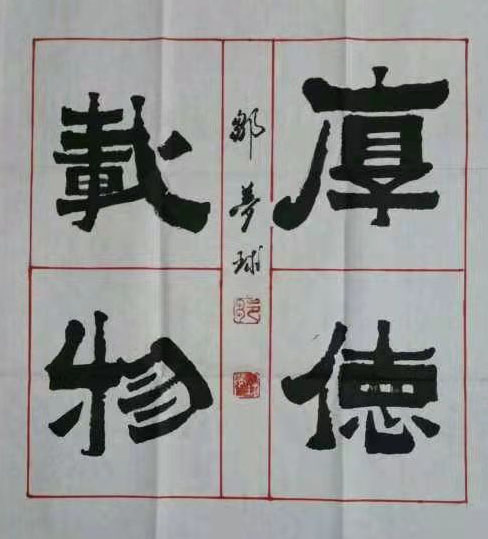 厚德
載物
鄒夢球